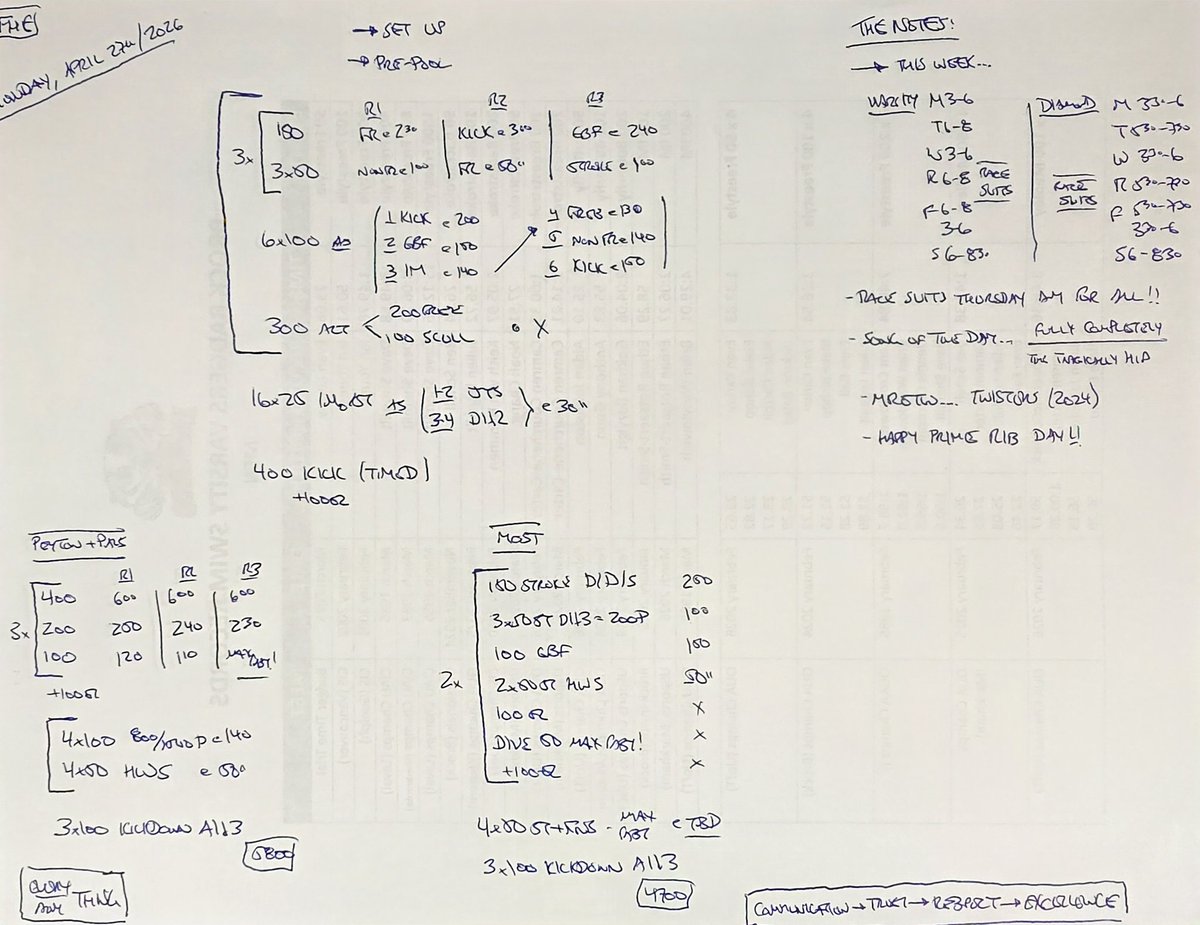 THE
MONDAY, APRIL 27th/2026
→ SET UP
→ PRE-POOL
R1 R2 R3
3x
150 FR @ 230 KICK @ 300 GBF @ 240
3x50 NONFR @ 100 FR @ 50" STROKE @ 100
6x100 AS
1 KICK @ 200
2 GBF @ 150
3 IM @ 140
4 FRRB @ 130
5 NONFR @ 140
6 KICK @ 150
300 ALT
200 FREE
100 SCULL
• X
16x25 IMOST AS
1-2 JTS
3-4 D1↓2
@ 30"
400 KICK (TIMED)
+100EZ
PEYTON + PALS
R1 R2 R3
3x
400 600 600 600
200 250 240 230
100 120 110 MAX PABT!
+100EZ
4x100 800/1500P @ 140
4x50 HWS @ 50"
3x100 KICKDOWN A1↓3
5800
EVERY DAY THING
MOST
2x
150 STROKE D/D/S 250
3x50ST D1↓3=200P 100
100 GBF 150
2x50ST HWS 50"
100EZ X
DIVE 50 MAX PABT! X
+100EZ X
4x50 ST+FNS - MAX PABT @ TBD
3x100 KICKDOWN A1↓3
4700
THE NOTES!
→ THIS WEEK...
VARSITY M3-6
T6-8
W3-6
R6-8 RACE SUITS
F6-8
3-6
S6-830
M 330-6
T 530-730
W 330-6
RACE SUITS R 530-730
F 530-730
330-6
S6-830
- RACE SUITS THURSDAY AM FOR ALL!!
- SONG OF THE DAY... FULLY COMPLETELY
THE TRAGICALLY HIP
- MROTW... TWISTERS (2024)
- HAPPY PRIME RIB DAY!!
COMMUNICATION → TRUST → RESPECT → EXCELLENCE